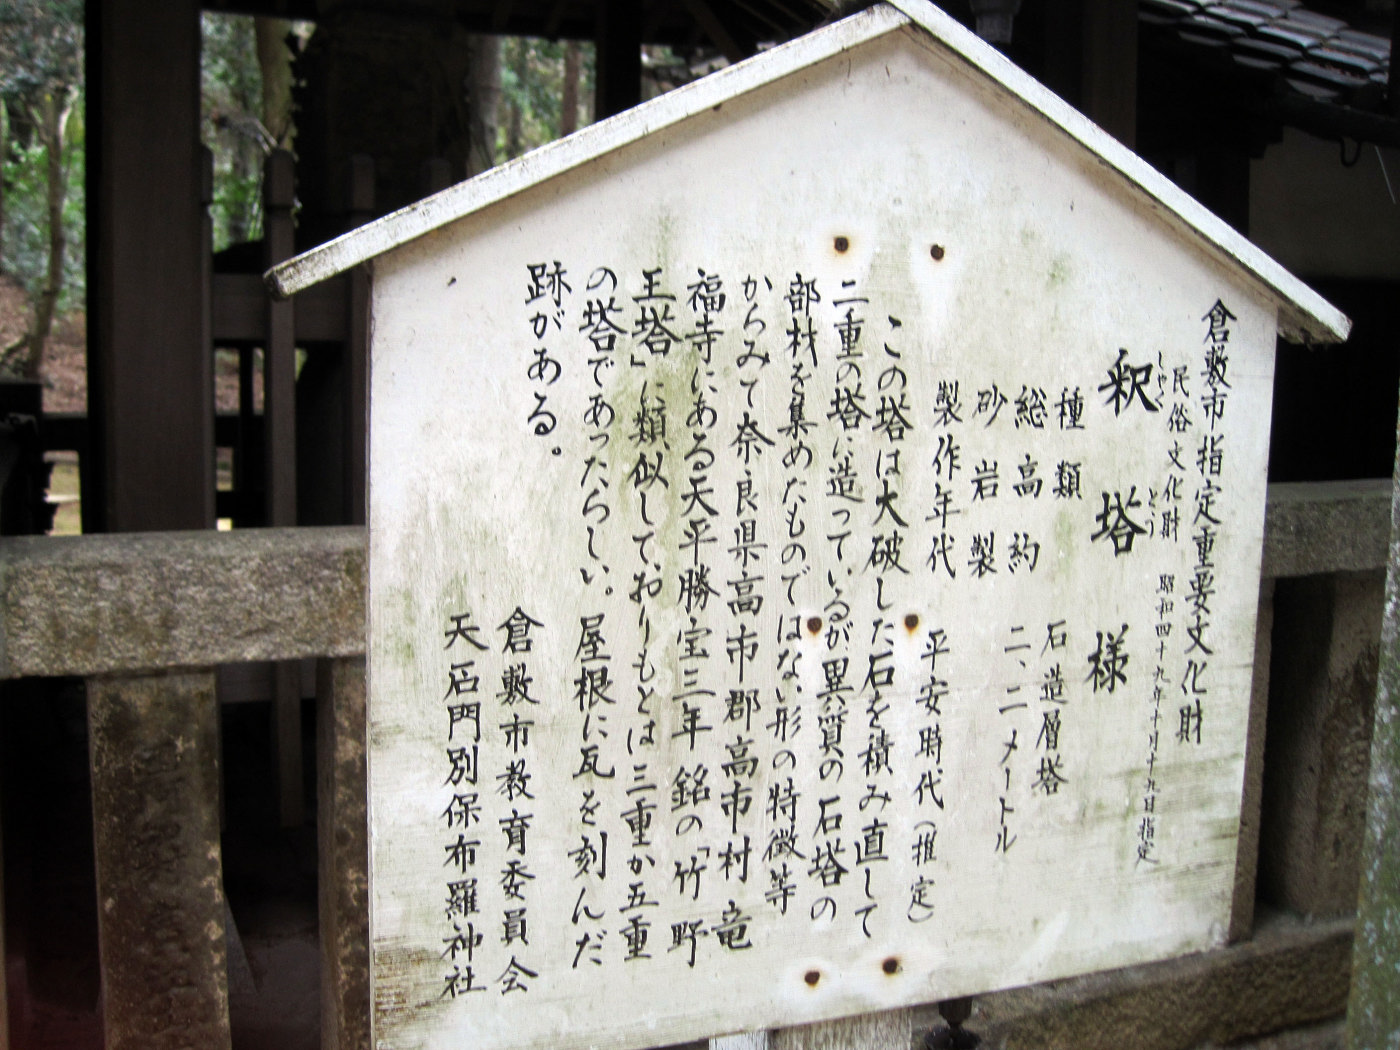 倉敷市指定重要文化財
民俗文化財 昭和四十九年十月十九日指定
しゃくとう
釈塔様
種類 石造層塔
総高約 二、二メートル
砂岩製
製作年代 平安時代(推定)
この塔は大破した石を積み直して
二重の塔に造っているが異質の石塔の
部材を集めたものではない形の特徴等
からみて奈良県高市郡高市村竜
福寺にある天平勝宝三年銘の「竹野
王塔」に類似しておりもとは三重か五重
の塔であったらしい。屋根に瓦を刻んだ
跡がある。
倉敷市教育委員会
天石門別保布羅神社